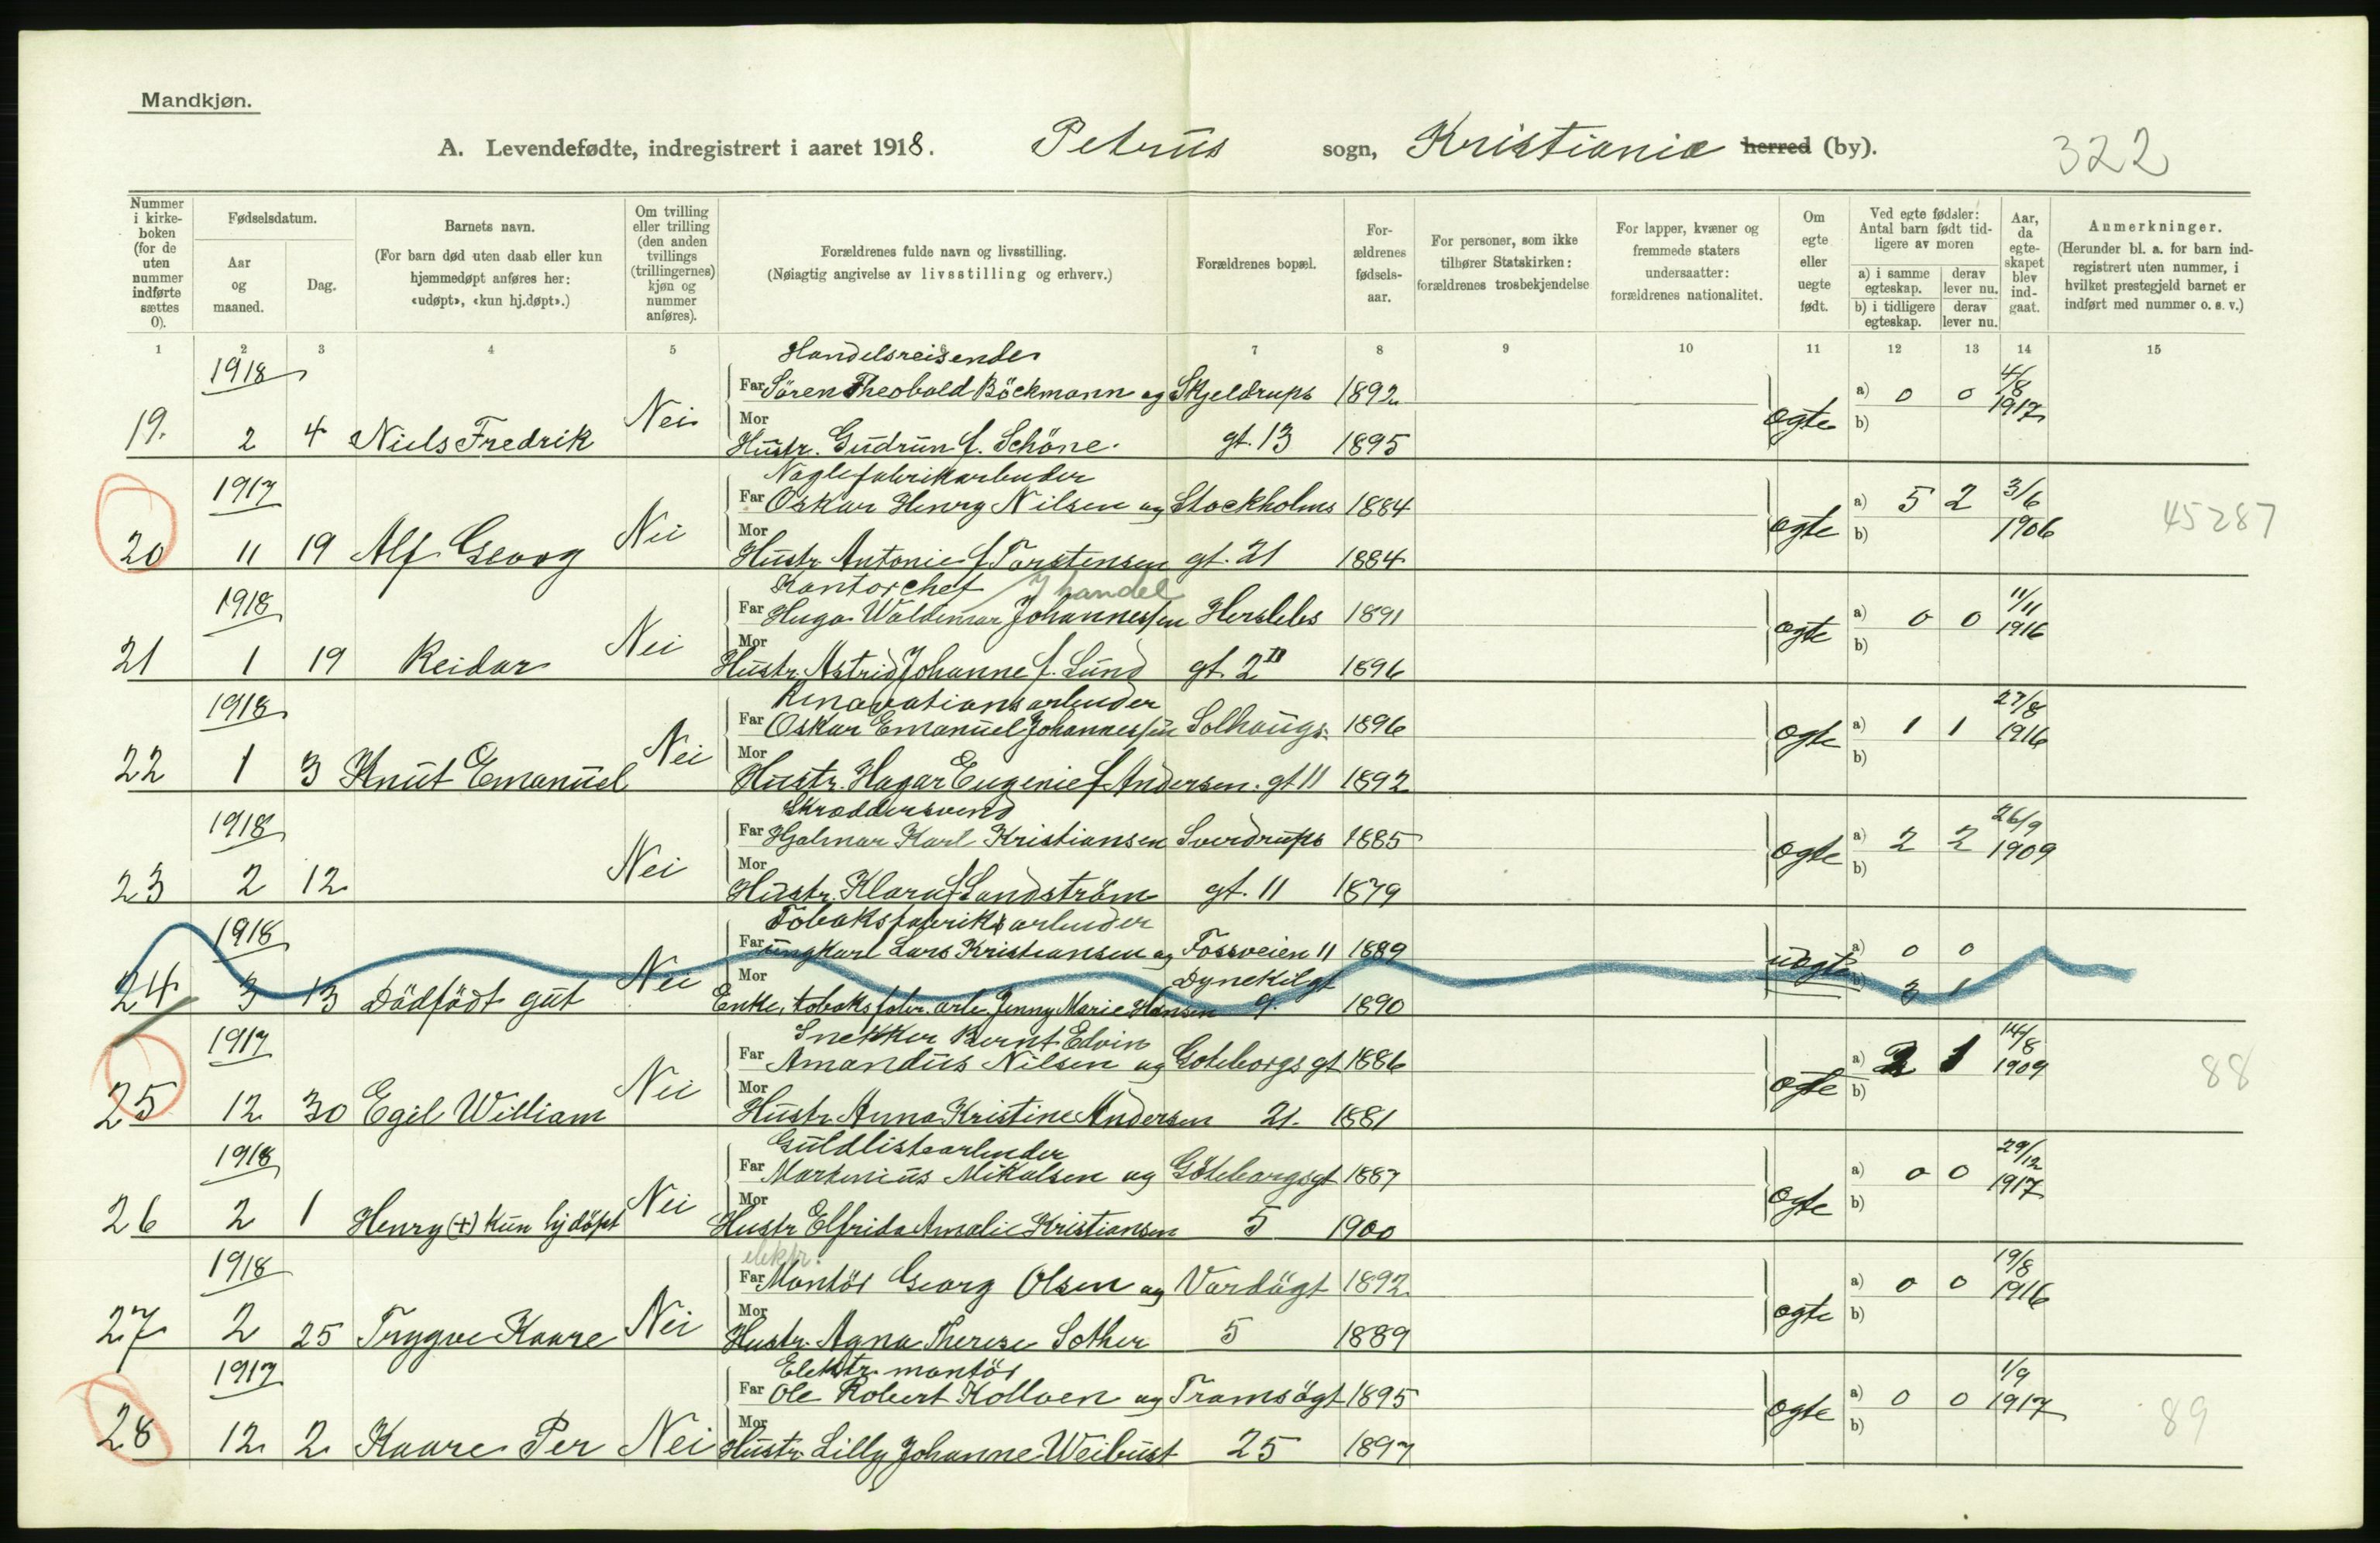 Mandkjøn.
A. Levendefødte, indregistrert i aaret 1918. Petrus sogn, Kristiania herred (by). 322
Nummer i kirke-boken (for de uten nummer indførte sættes 0).
Fødselsdatum.
Aar og maaned.
Dag.
Barnets navn.
(For barn død uten daab eller kun hjemmedøpt anføres her: «udøpt», «kun hj.døpt».)
Om tvilling eller trilling (den anden tvillings (trillingernes) kjøn og nummer anføres).
Forældrenes fulde navn og livsstilling.
(Nøiagtig angivelse av livsstilling og erhverv.)
Forældrenes bopæl.
For-ældrenes fødsels-aar.
For personer, som ikke tilhører Statskirken: forældrenes trosbekjendelse
For lapper, kvæner og fremmede staters undersaatter: forældrenes nationalitet.
Om egte eller uegte født.
Ved egte fødsler: Antal barn født tid-ligere av moren
a) i samme egteskap.
derav lever nu.
b) i tidligere egteskap.
derav lever nu.
Aar, da egte-skapet blev ind-gaat.
Anmerkninger.
(Herunder bl. a. for barn ind-registrert uten nummer, i hvilket prestegjeld barnet er indført med nummer o. s. v.)
1 2 3 4 5 6 7 8 9 10 11 12 13 14 15
1918 Handelsreisende
Far Sören Theobald Böckmann og Skjeldrups 1892 a) 0 0 4/8 1917
19. 2 4 Niels Fredrik Nei Mor Hustr. Gudrun f. Schöne. gt. 13 1895 egte b)
1917 Naglefabrikarbeider
Far Oskar Henry Nilsen og Stockholms 1884 a) 5 2 3/6 1906 45287
20 11 19 Alf Georg Nei Mor Hustr. Antonie f. Torstensen gt. 21 1884 egte b)
1918 Kontorchef I handel
Far Hugo Waldemar Johannessen Herslebs 1891 a) 0 0 11/11 1916
21 1 19 Reidar Nei Mor Hustr. Astrid Johanne f. Lund gt. 2 II 1896 egte b)
1918 Renovationsarbeider
Far Oskar Emanuel Johannessen Solhaugs- 1896 a) 1 1 27/8 1916
22 1 3 Knut Emanuel Nei Mor Hustr. Hagar Eugenie f. Andersen. gt 11 1892 egte b)
1918 Skræddersvend
Far Hjalmar Karl Kristiansen Sverdrups 1885 a) 2 2 26/9 1909
23 2 12 Nei Mor Hustr. Klara f. Landström gt. 11 1879 egte b)
1918 Tobaksfabriksarbeider
Far Ungkarl Lars Kristiansen og Fossveien 11 1889 a) 0 0
24 3 13 Dödfödt gut Nei Mor Enke, tobaksfabr. arb. Jenny Marie Hansen Dynekilgt 9. 1890 uegte b) 3 1
1917 Snekker Bernt Edvin
Far Amandus Nilsen og Goteborgsgt 1886 a) 2 1 14/8 1909 88
25 12 30 Egil William Nei Mor Hustr. Anna Kristine Andersen 21. 1881 egte b)
1918 Guldlistearbeider
Far Martinius Mikalsen og Göteborgsgt 1887 a) 0 0 29/12 1917
26 2 1 Henry (+) kun hjdöpt Nei Mor Hustr Elfrida Amalie Kristiansen 5 1900 egte b)
1918 elektr.
Far Montör Georg Olsen og Vardögt 1892 a) 0 0 19/8 1916
27 2 25 Trygve Kaare Nei Mor Hustr. Agna Therese Sother 5 1889 egte b)
1917 Elektr. montör
Far Ole Robert Kolloen og Tromsögt 1895 a) 0 0 1/9 1917 89
28 12 2 Kaare Per Nei Mor Hustr. Lilly Johanne Weibust 25 1897 egte b)